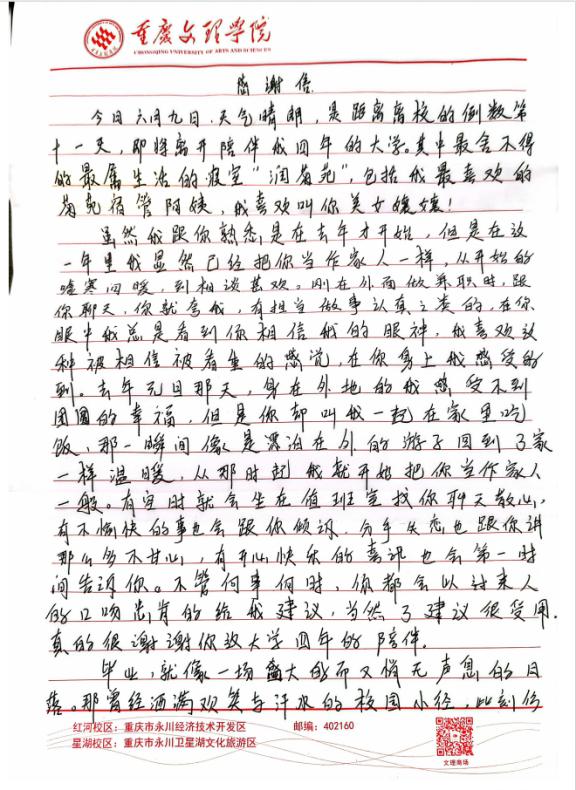 重庆文理学院
CHONGQING UNIVERSITY OF ARTS AND SCIENCES
感谢信
今日六月九日,天气晴朗,是距离离校的倒数第
十一天,即将离开陪伴我四年的大学。其中最舍不得
的最属生活的寝室“润菊苑”,包括我最喜欢的
菊苑宿管阿姨,我喜欢叫你美女嬢嬢!
虽然我跟你熟悉是在去年才开始,但是在这
一年里我显然已经把你当作家人一样,从开始的
嘘寒问暖,到相谈甚欢。刚在外面做兼职时,跟
你聊天,你就夸我,有担当做事认真之类的,在你
眼中我总是看到你相信我的眼神,我喜欢这
种被相信被看重的感觉,在你身上我感受的
到。去年元旦那天,身在外地的我感受不到
团圆的幸福,但是你却叫我一起在家里吃
饭,那一瞬间像是漂泊在外的游子回到了家
一样温暖,从那时起我就开始把你当作家人
一般。有空时就会坐在值班室找你聊天散心,
有不愉快的事也会跟你倾诉,分手失恋也跟你讲
那么多不甘心,有开心快乐的喜讯也会第一时
间告诉你。不管何事何时,你都会以过来人
的口吻中肯的给我建议,当然了建议很受用。
真的很谢谢你这大学四年的陪伴。
毕业,就像一场盛大的而又悄无声息的日
落。那曾经洒满欢笑与汗水的校园小径,此刻仿
红河校区:重庆市永川经济技术开发区 邮编:402160
星湖校区:重庆市永川卫星湖文化旅游区
文理商场